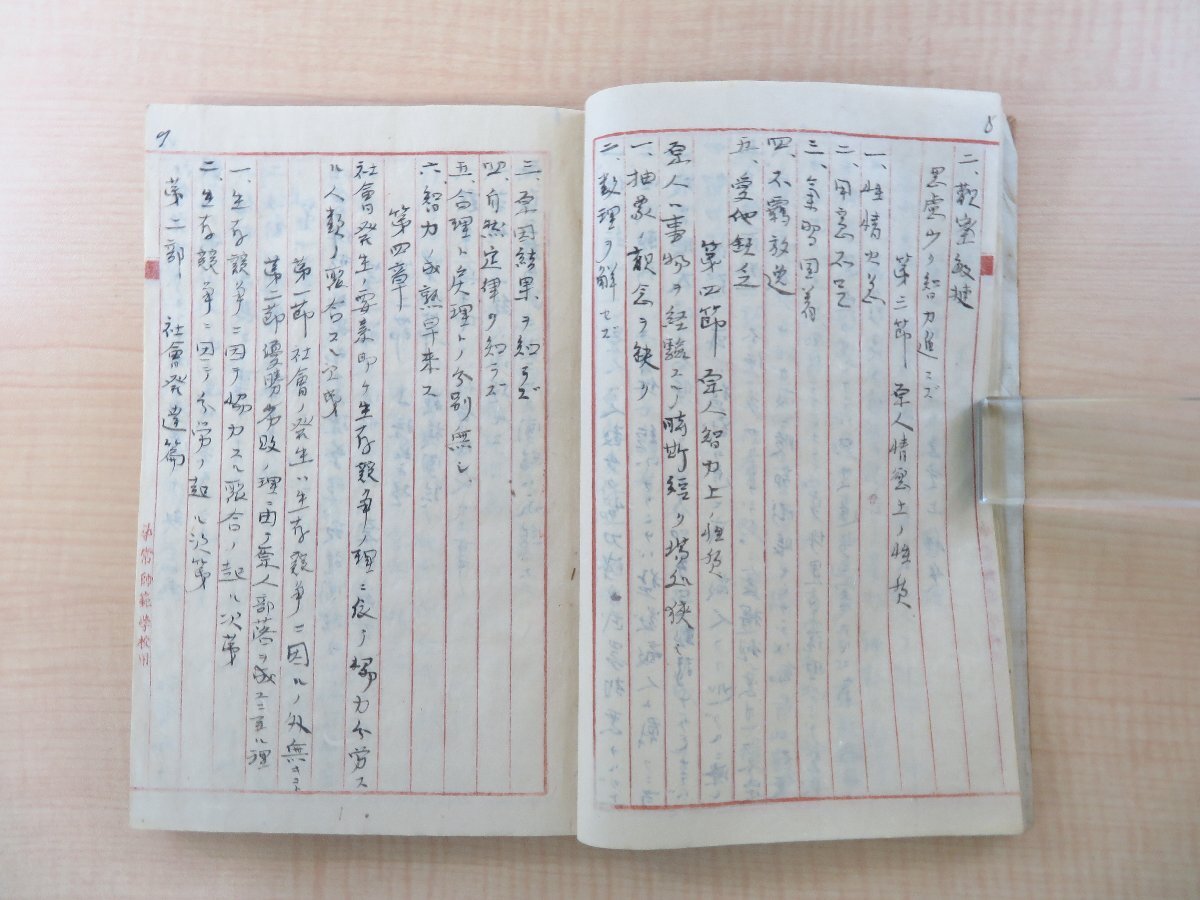 8
二、観察敏捷
思慮少ク智力進ミズ
第三節 原人情意上ノ性質
一、性情火急
二、用意不足
三、気習固着
四、不羈放逸
五、愛他観乏
第四節 原人智力上ノ性質
原人ハ事物ヲ経験スルノ時期短ク場処狭シ
一、抽象ノ観念ヲ缺ク
二、数理ヲ解セズ
9
三、原因結果ヲ知ラズ
四、自然定律ヲ知ラズ
五、合理ト失理トノ分別無シ
六、智力ノ成熟早来ス
第四章
社會発生ノ要素即ケ生存競争ノ理ニ依リ協力分労ス
ル人類ノ聚合スル
第一節 社會ノ発生ハ生存競争ニ因ルノ外無キ
第二節 優勝劣敗ノ理ニ由リ原人部落ヲ成スニ至ル理
一、生存競争ニ因テ協力スル聚合ノ起ル次第
二、生存競争ニ因テ分労ノ起ル次第
第二部 社會発達篇
尋常師範学校用